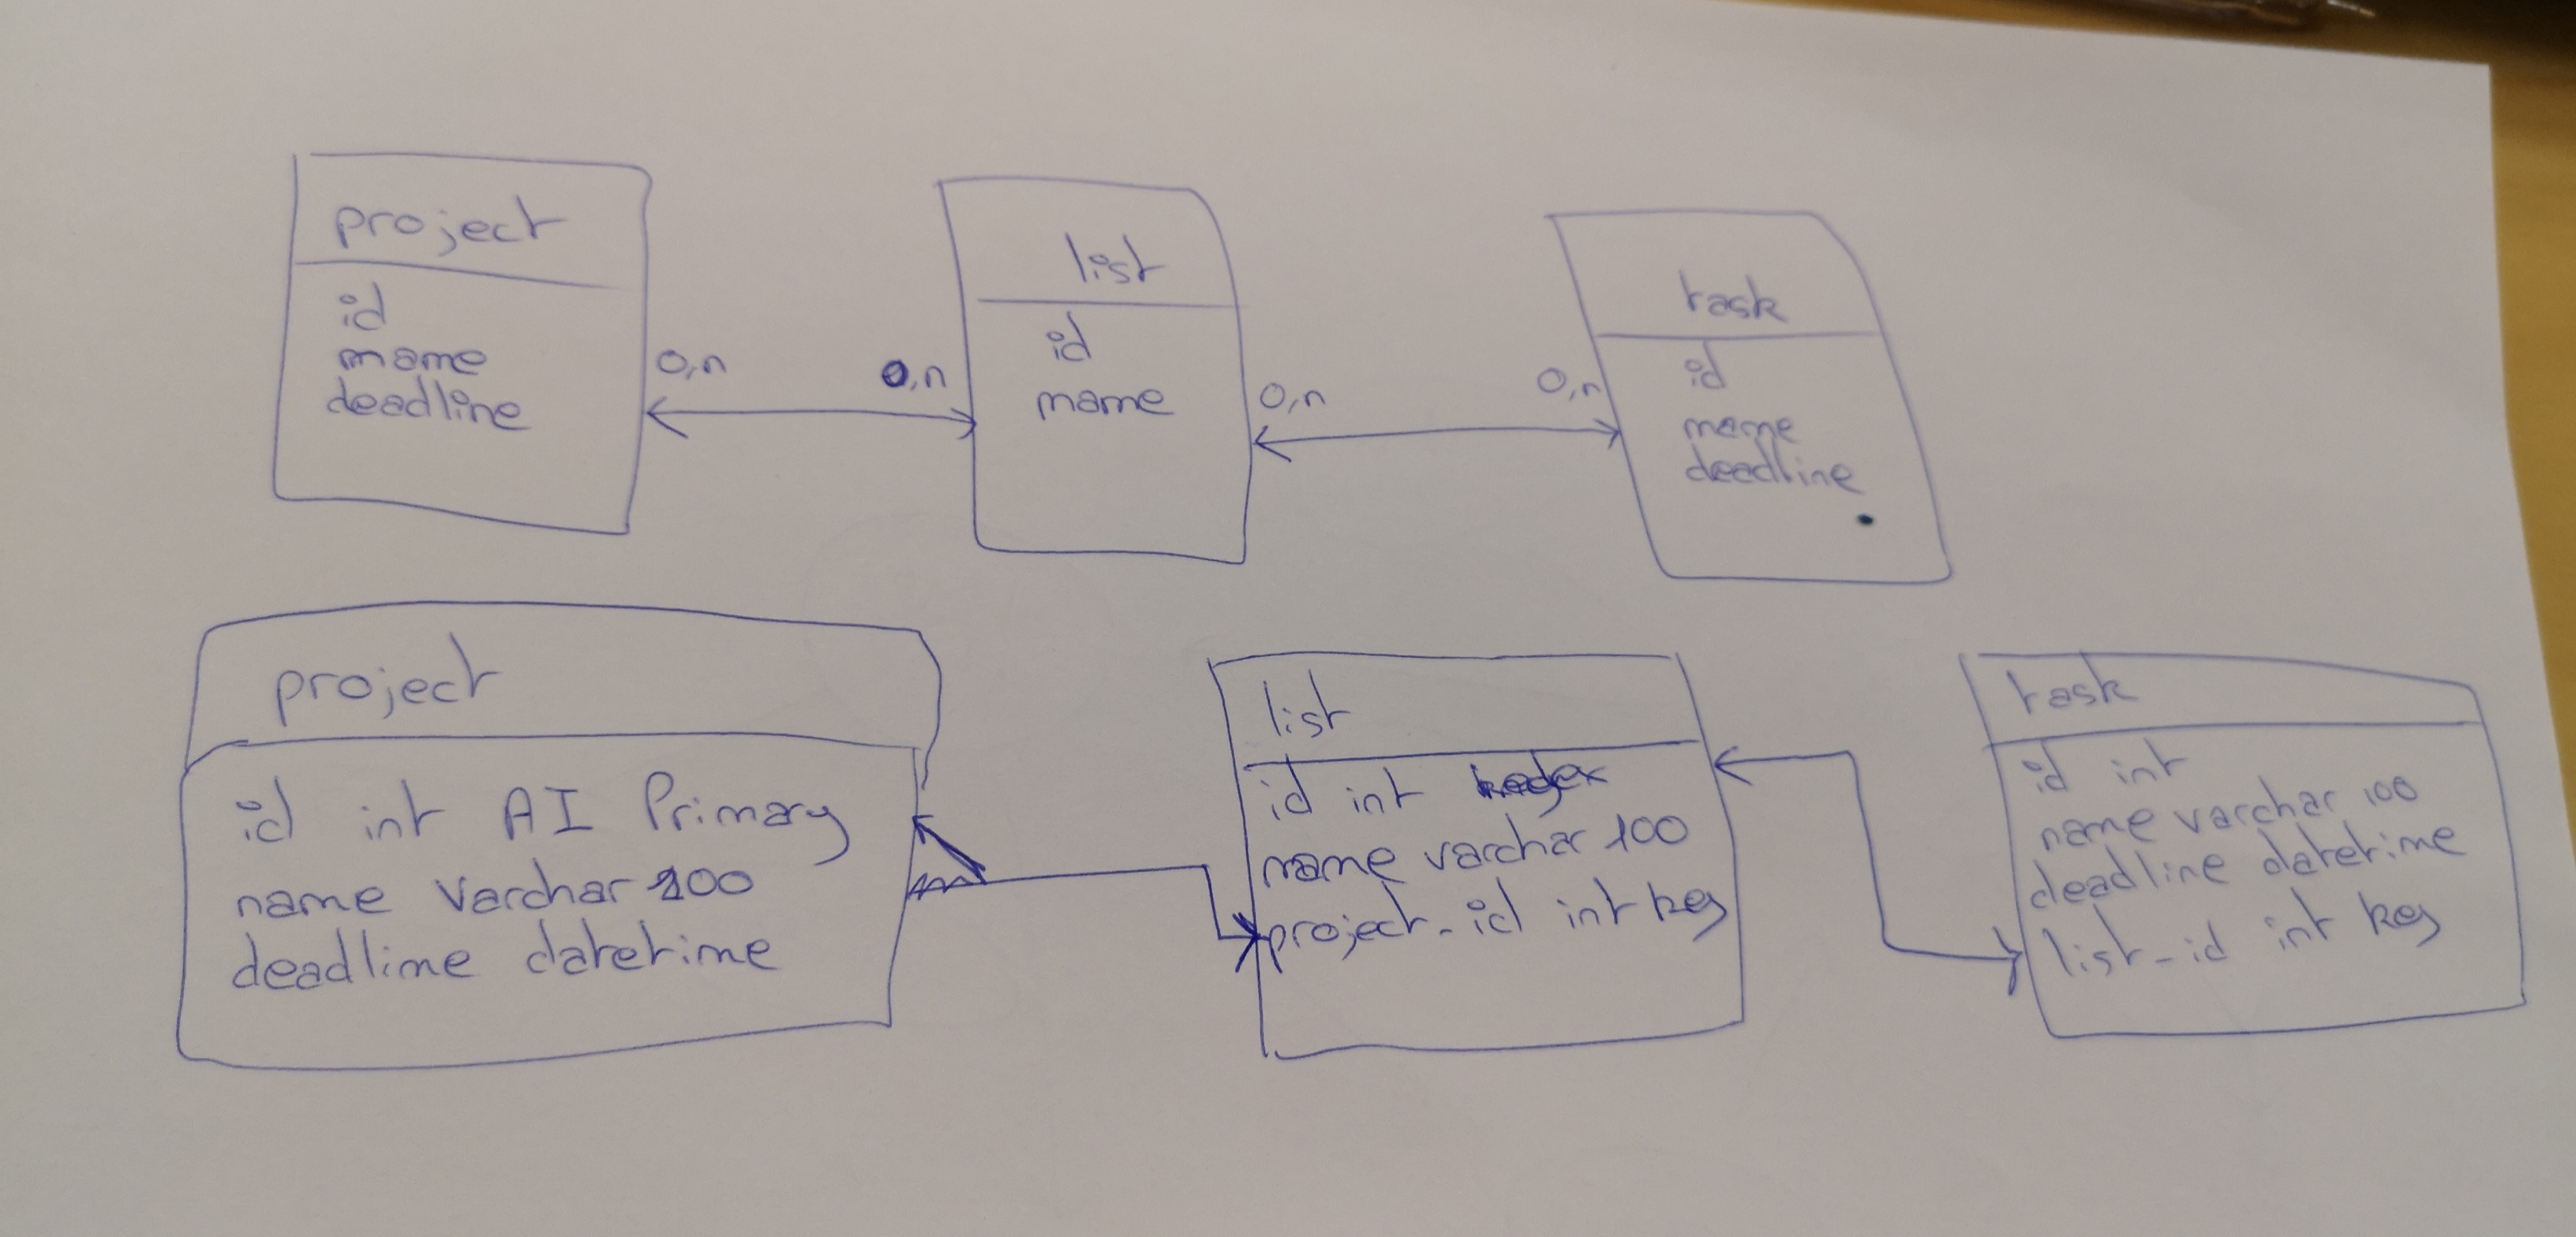 project
id
name
deadline
0,n
0,n
list
id
name
0,n
0,n
task
id
name
deadline
project
id int AI Primary
name varchar 100
deadline datetime
list
id int
name varchar 100
project_id int key
task
id int
name varchar 100
deadline datetime
list_id int key